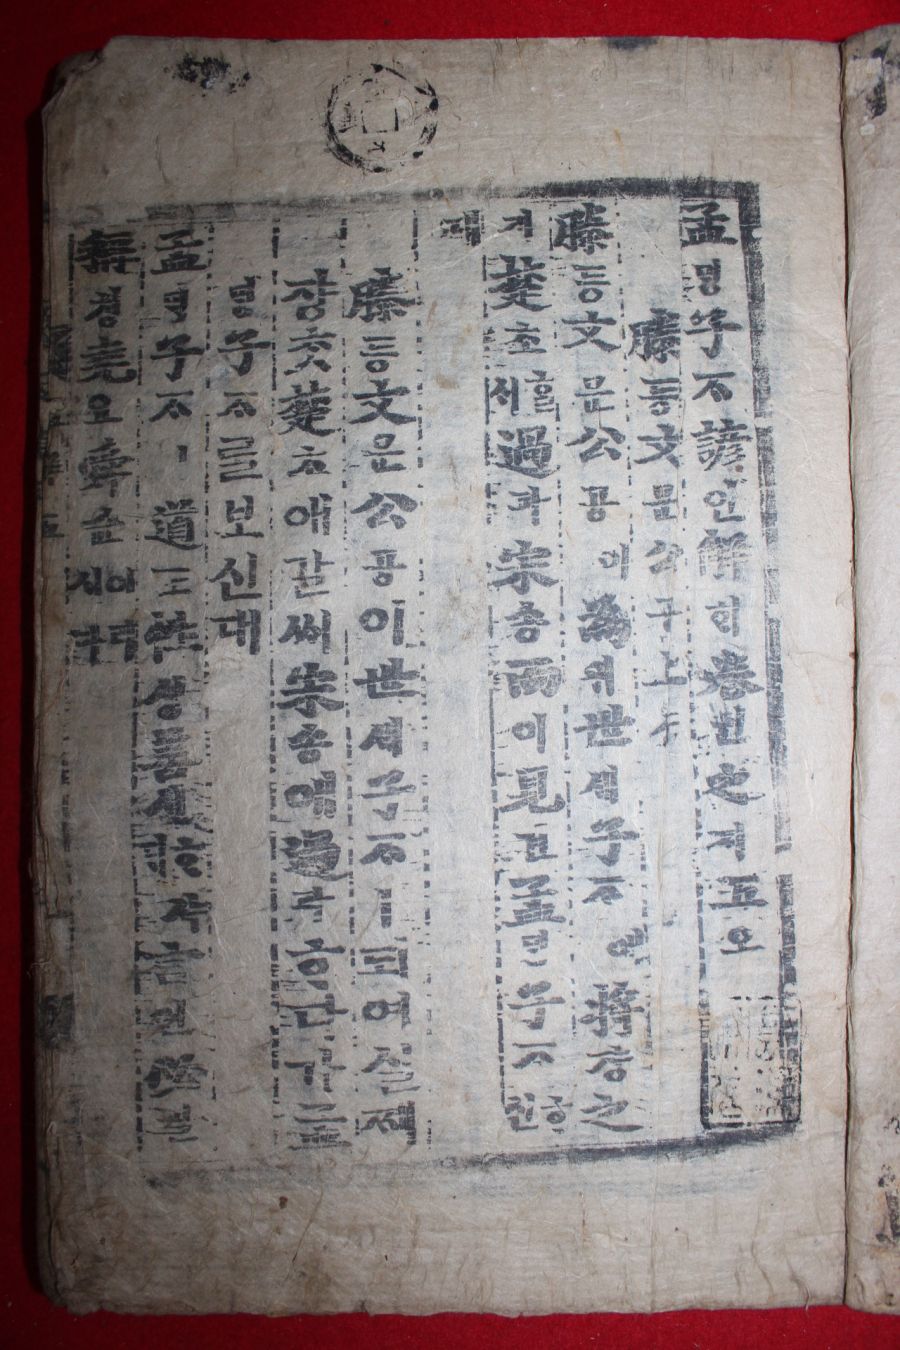 孟ᄆᆡᆼ子ᄌᆞ諺언解ᄒᆡ卷권之지五오
滕등文문公공上
滕등文문公공이為위世셰子ᄌᆞ에將쟝之지
楚초ᄒᆞᆯᄉᆡ過과宋송而이見견孟ᄆᆡᆼ子ᄌᆞᄒᆞᆫ대
滕등文문公공이世셰子ᄌᆞㅣ되여실제
쟝ᄎᆞᆺ楚초애갈ᄉᆡ宋송애過과ᄒᆞᆫ다가孟
ᄆᆡᆼ子ᄌᆞ를보신대
孟ᄆᆡᆼ子ᄌᆞㅣ道도性셩善션ᄒᆞ샤ᄃᆡ言언必필
稱칭堯요舜슌이러시다